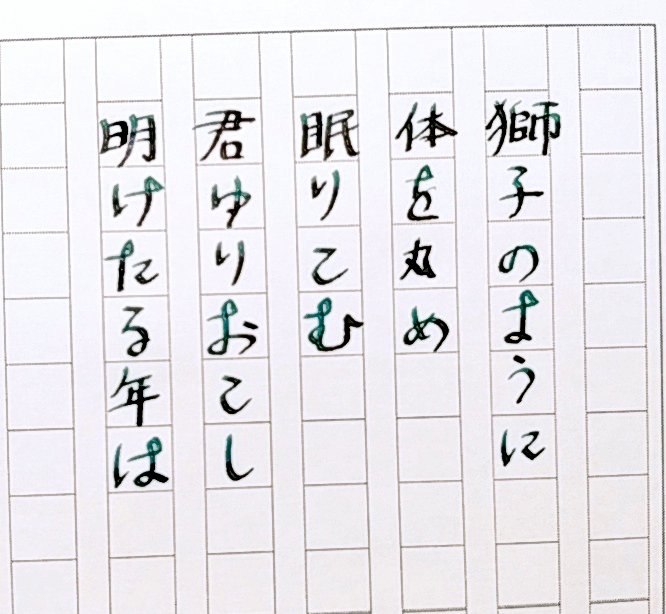 獅子のように
体を丸め
眠りこむ
君ゆりおこし
明けたる年は